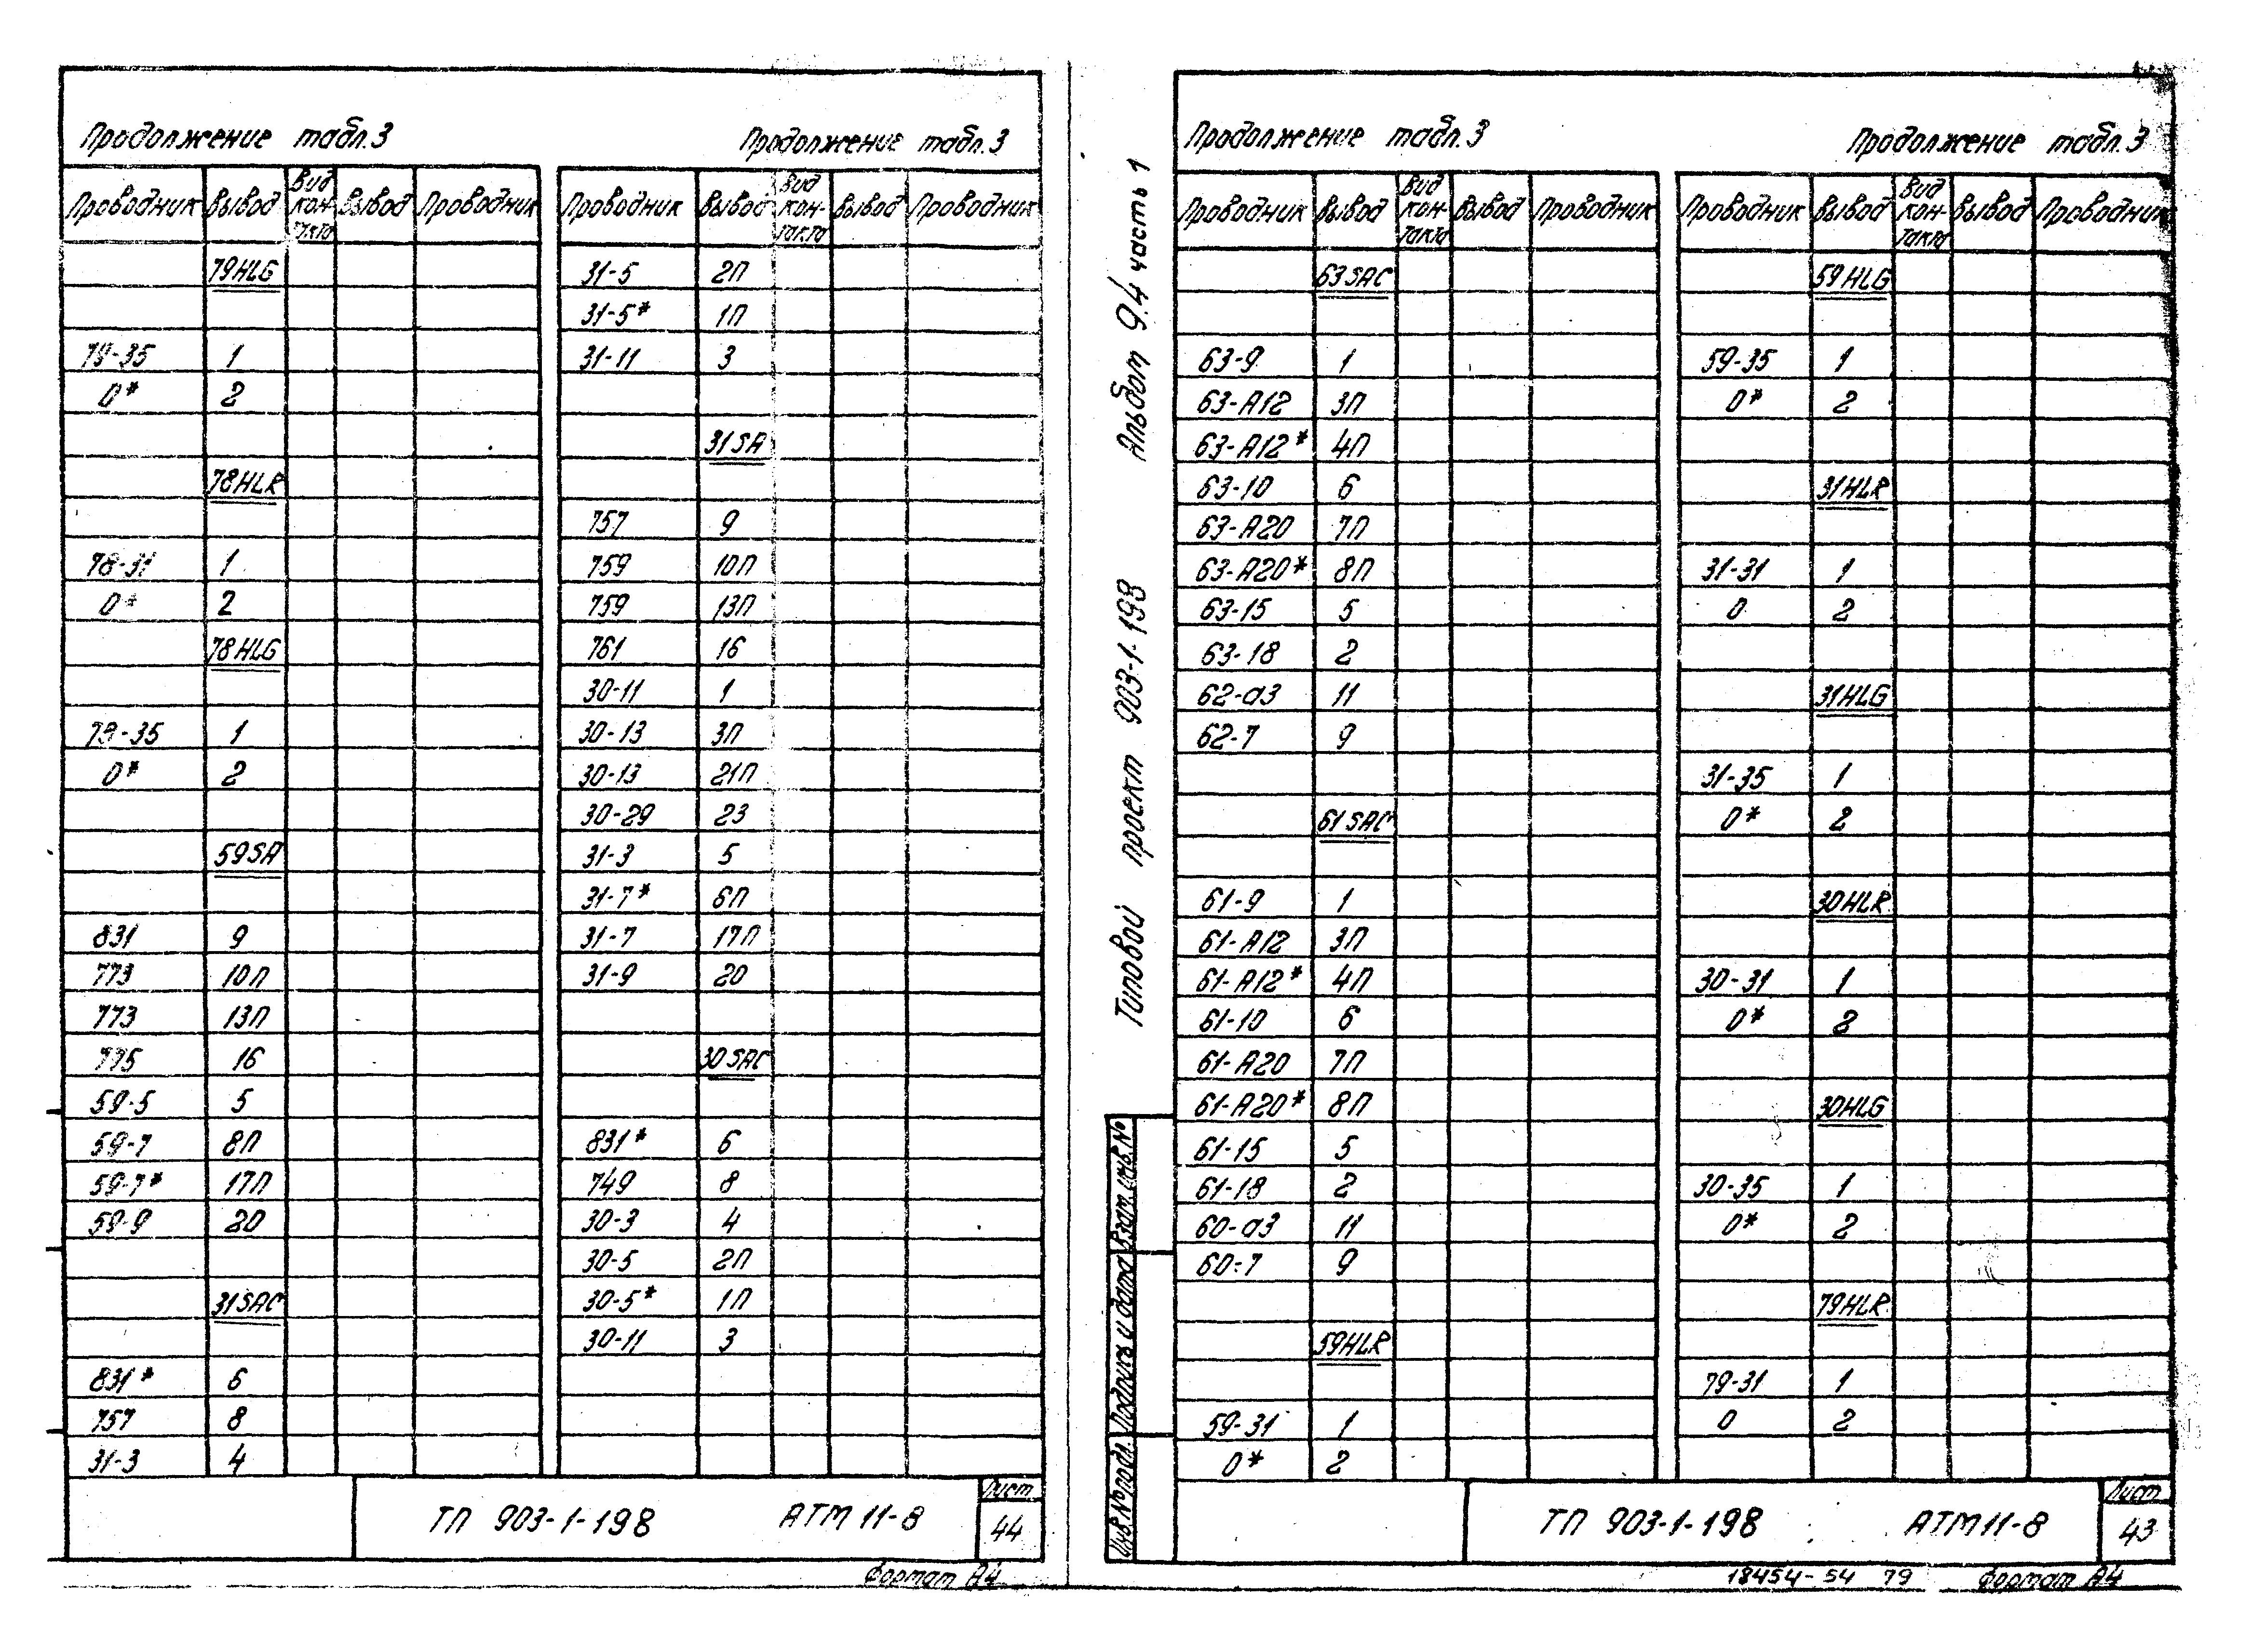 Продолжение табл.3
Проводник Вывод Вид кон- такта Вывод Проводник
79HLG
79-35 1
0* 2
78HLR
78-31 1
0* 2
78HLG
78-35 1
0* 2
59SA
831 9
773 10П
773 13П
775 16
59-5 5
59-7 8П
59-7* 17П
59-9 20
31SAC
831* 6
757 8
31-3 4
Продолжение табл.3
Проводник Вывод Вид кон- такта Вывод Проводник
31-5 2П
31-5* 1П
31-11 3
31SA
757 9
759 10П
759 13П
761 16
30-11 1
30-13 3П
30-13 21П
30-29 23
31-3 5
31-7* 6П
31-7 17П
31-9 20
30SAC
831* 6
749 8
30-3 4
30-5 2П
30-5* 1П
30-11 3
ТП 903-1-198 АТМ 11-8
Лист
44
Формат А4
Типовой проект 903-1-198 Альбом 9.4 часть 1
Продолжение табл.3
Проводник Вывод Вид кон- такта Вывод Проводник
63SAC
63-9 1
63-А12 3П
63-А12* 4П
63-10 6
63-А20 7П
63-А20* 8П
63-15 5
63-18 2
62-а3 11
62-7 9
61SAC
61-9 1
61-А12 3П
61-А12* 4П
61-10 6
61-А20 7П
61-А20* 8П
61-15 5
61-18 2
60-а3 11
60-7 9
59HLR
59-31 1
0* 2
Продолжение табл.3
Проводник Вывод Вид кон- такта Вывод Проводник
59HLG
59-35 1
0* 2
31HLR
31-31 1
0 2
31HLG
31-35 1
0* 2
30HLR
30-31 1
0* 2
30HLG
30-35 1
0* 2
79HLR
79-31 1
0 2
Инв.№подл. Подпись и дата Взам.инв.№
ТП 903-1-198 АТМ11-8
Лист
43
18454-54 79 Формат А4